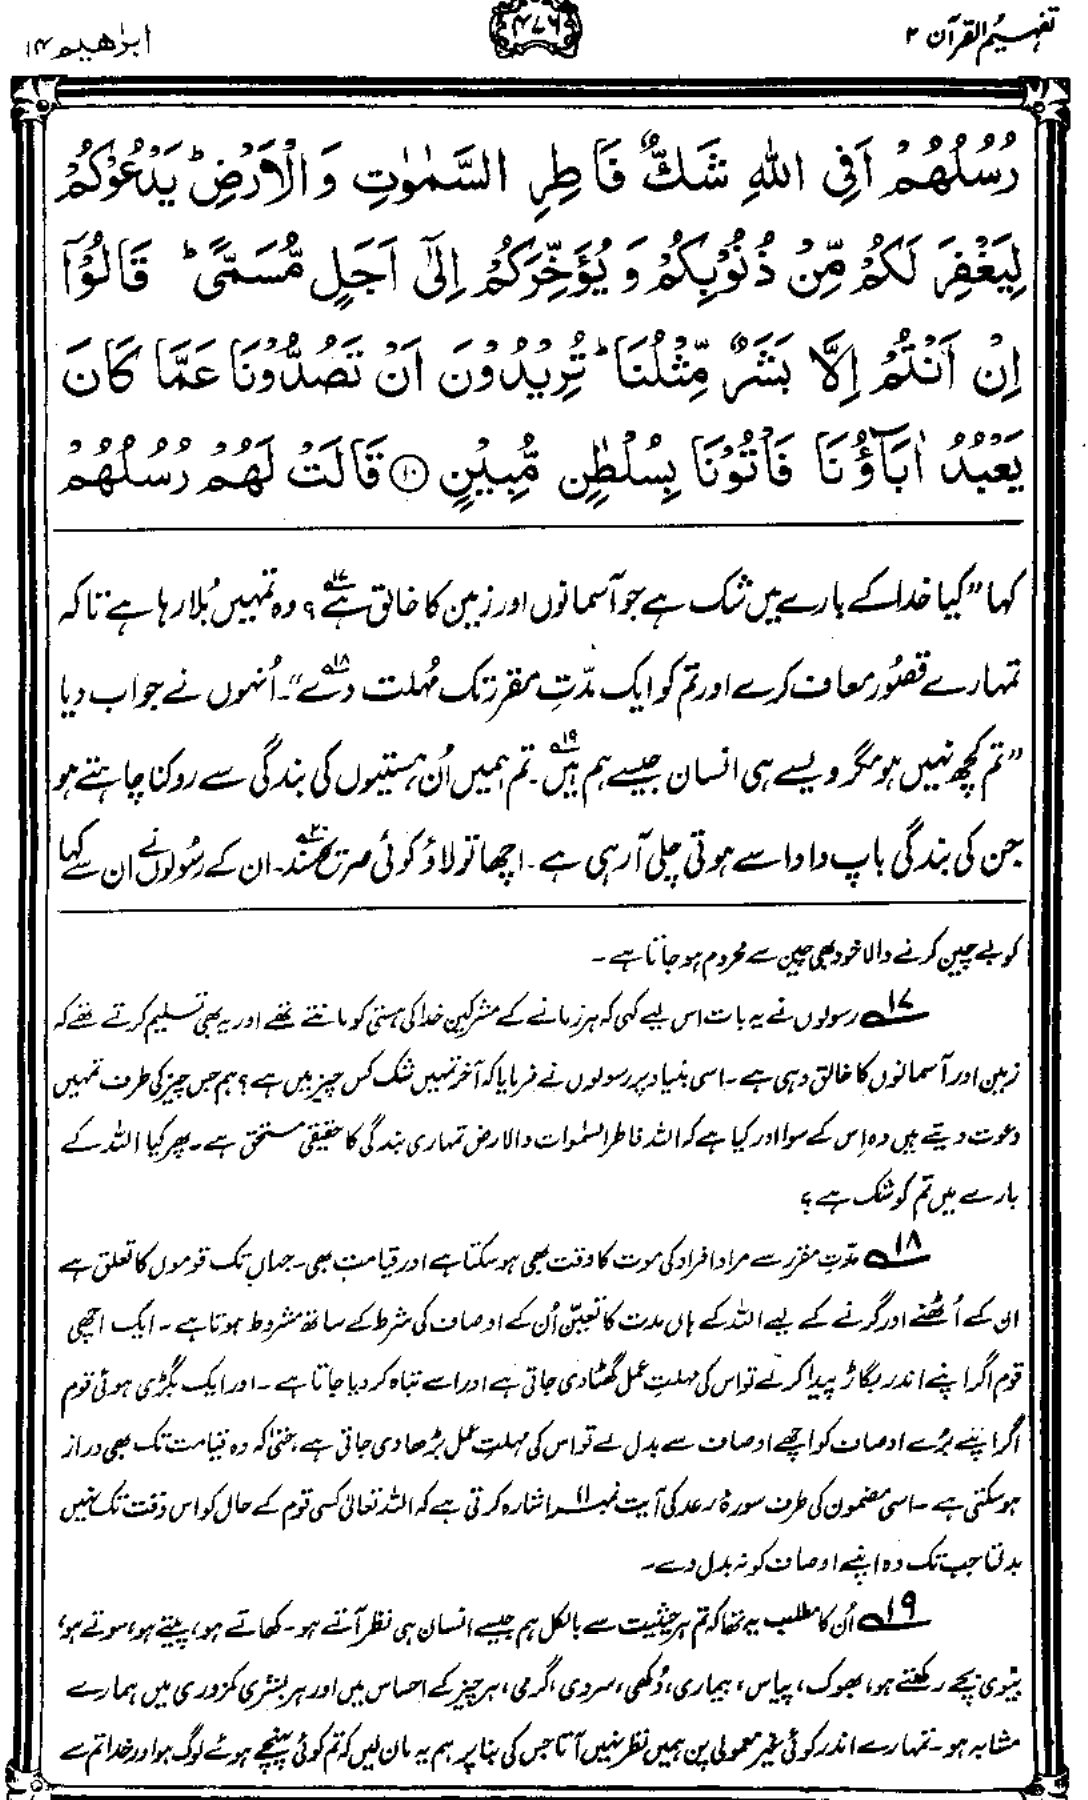 تفہیم القرآن ۲
۴۷۶
ابرٰھیم ۱۴
رُسُلُهُمْ اَفِی اللّٰهِ شَكٌّ فَاطِرِ السَّمٰوٰتِ وَالْاَرْضِ ؕ یَدْعُوْكُمْ
لِیَغْفِرَ لَكُمْ مِّنْ ذُنُوْبِكُمْ وَ یُؤَخِّرَكُمْ اِلٰۤی اَجَلٍ مُّسَمًّی ؕ قَالُوْۤا
اِنْ اَنْتُمْ اِلَّا بَشَرٌ مِّثْلُنَا ؕ تُرِیْدُوْنَ اَنْ تَصُدُّوْنَا عَمَّا كَانَ
یَعْبُدُ اٰبَآؤُنَا فَاْتُوْنَا بِسُلْطٰنٍ مُّبِیْنٍ ⑩ قَالَتْ لَهُمْ رُسُلُهُمْ
کہا ”کیا خدا کے بارے میں شک ہے جو آسمانوں اور زمین کا خالق ہے۱۷؟ وہ تمہیں بُلا رہا ہے تاکہ
تمہارے قصُور معاف کرے اور تم کو ایک مدّتِ مقرر تک مُہلت دے۱۸“۔ اُنہوں نے جواب دیا
”تم کچھ نہیں ہو مگر ویسے ہی انسان جیسے ہم ہیں۱۹۔ تم ہمیں اُن ہستیوں کی بندگی سے روکنا چاہتے ہو
جن کی بندگی باپ دادا سے ہوتی چلی آ رہی ہے۔ اچھا تو لاؤ کوئی صریح سَند۲۰۔ ان کے رسُولوں نے ان سے کہا
کو بے چین کرنے والا خود بھی چین سے محروم ہو جاتا ہے۔
۱۷ رسولوں نے یہ بات اس لیے کہی کہ ہر زمانے کے مشرکین خدا کی ہستی کو مانتے تھے اور یہ بھی تسلیم کرتے تھے کہ
زمین اور آسمانوں کا خالق وہی ہے۔ اسی بنیاد پر رسولوں نے فرمایا کہ آخر تمہیں شک کس چیز میں ہے؟ ہم جس چیز کی طرف تمہیں
دعوت دیتے ہیں وہ اِس کے سوا اور کیا ہے کہ اللہ فاطر السمٰوات والارض تمہاری بندگی کا حقیقی مستحق ہے۔ پھر کیا اللہ کے
بارے میں تم کو شک ہے؟
۱۸ مدّتِ مقرر سے مراد افراد کی موت کا وقت بھی ہو سکتا ہے اور قیامت بھی۔ جہاں تک قوموں کا تعلق ہے
ان کے اُٹھنے اور گرنے کے لیے اللہ کے ہاں مدت کا تعیّن اُن کے اوصاف کی شرط کے ساتھ مشروط ہوتا ہے۔ ایک اچھی
قوم اگر اپنے اندر بگاڑ پیدا کر لے تو اس کی مہلتِ عمل گھٹا دی جاتی ہے اور اسے تباہ کر دیا جاتا ہے۔ اور ایک بگڑی ہوئی قوم
اگر اپنے بُرے اوصاف کو اچھے اوصاف سے بدل لے تو اس کی مہلتِ عمل بڑھا دی جاتی ہے، حتّٰی کہ وہ قیامت تک بھی دراز
ہو سکتی ہے۔ اسی مضمون کی طرف سورۂ رعد کی آیت نمبر ۱۱ اشارہ کرتی ہے کہ اللہ تعالیٰ کسی قوم کے حال کو اس وقت تک نہیں
بدلتا جب تک وہ اپنے اوصاف کو نہ بدل دے۔
۱۹ اُن کا مطلب یہ تھا کہ تم ہر حیثیت سے بالکل ہم جیسے انسان ہی نظر آتے ہو۔ کھاتے ہو، پیتے ہو، سوتے ہو،
بیوی بچے رکھتے ہو، بھوک، پیاس، بیماری، دُکھ، سردی، گرمی، ہر چیز کے احساس میں اور ہر بشری کمزوری میں ہمارے
مشابہ ہو۔ تمہارے اندر کوئی غیر معمولی پن ہمیں نظر نہیں آتا جس کی بنا پر ہم یہ مان لیں کہ تم کوئی پہنچے ہوئے لوگ ہو اور خدا تم سے